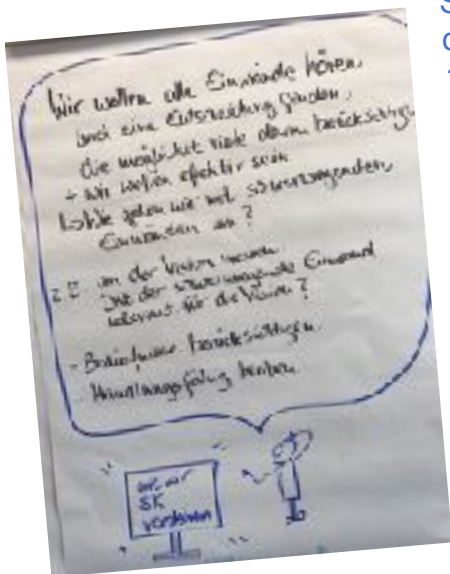 Wir wollen alle Einwände hören,
und eine Entscheidung finden,
die möglichst viele davon berücksichtigt
+ wir wollen effektiv sein
gehen wir mit schwerwiegenden
Einwänden um?
z.B. an der Vision messen
Ist der schwerwiegende Einwand
relevant für die Vision?
- Bedürfnisse berücksichtigen.
- Handlungsfähig bleiben.
SK
verstehen
S